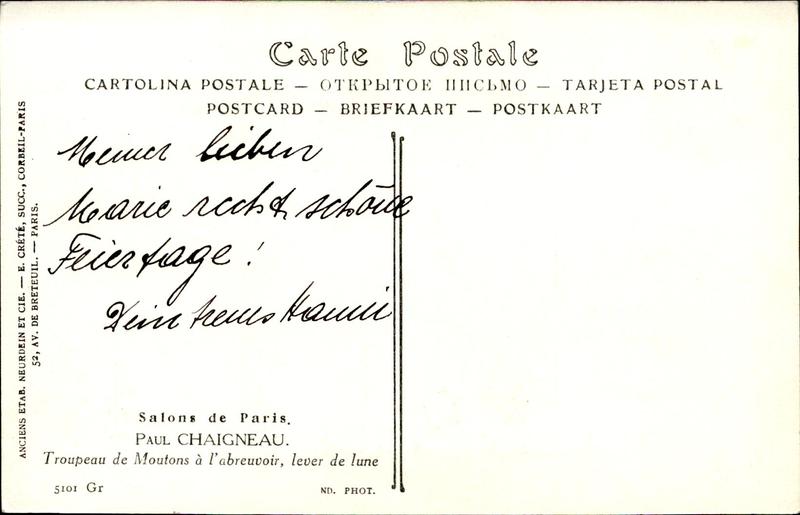 Carte Postale
CARTOLINA POSTALE — ОТКРЫТОЕ ПИСЬМО — TARJETA POSTAL
POSTCARD — BRIEFKAART — POSTKAART
ANCIENS ETAB. NEURDEIN ET CIE. — E. CRÉTÉ, SUCC., CORBEIL-PARIS
52, AV. DE BRETEUIL. — PARIS.
Meiner lieben
Marie recht schöne
Feiertage!
Dein
Salons de Paris.
PAUL CHAIGNEAU.
Troupeau de Moutons à l'abreuvoir, lever de lune
5101 Gr
ND. PHOT.